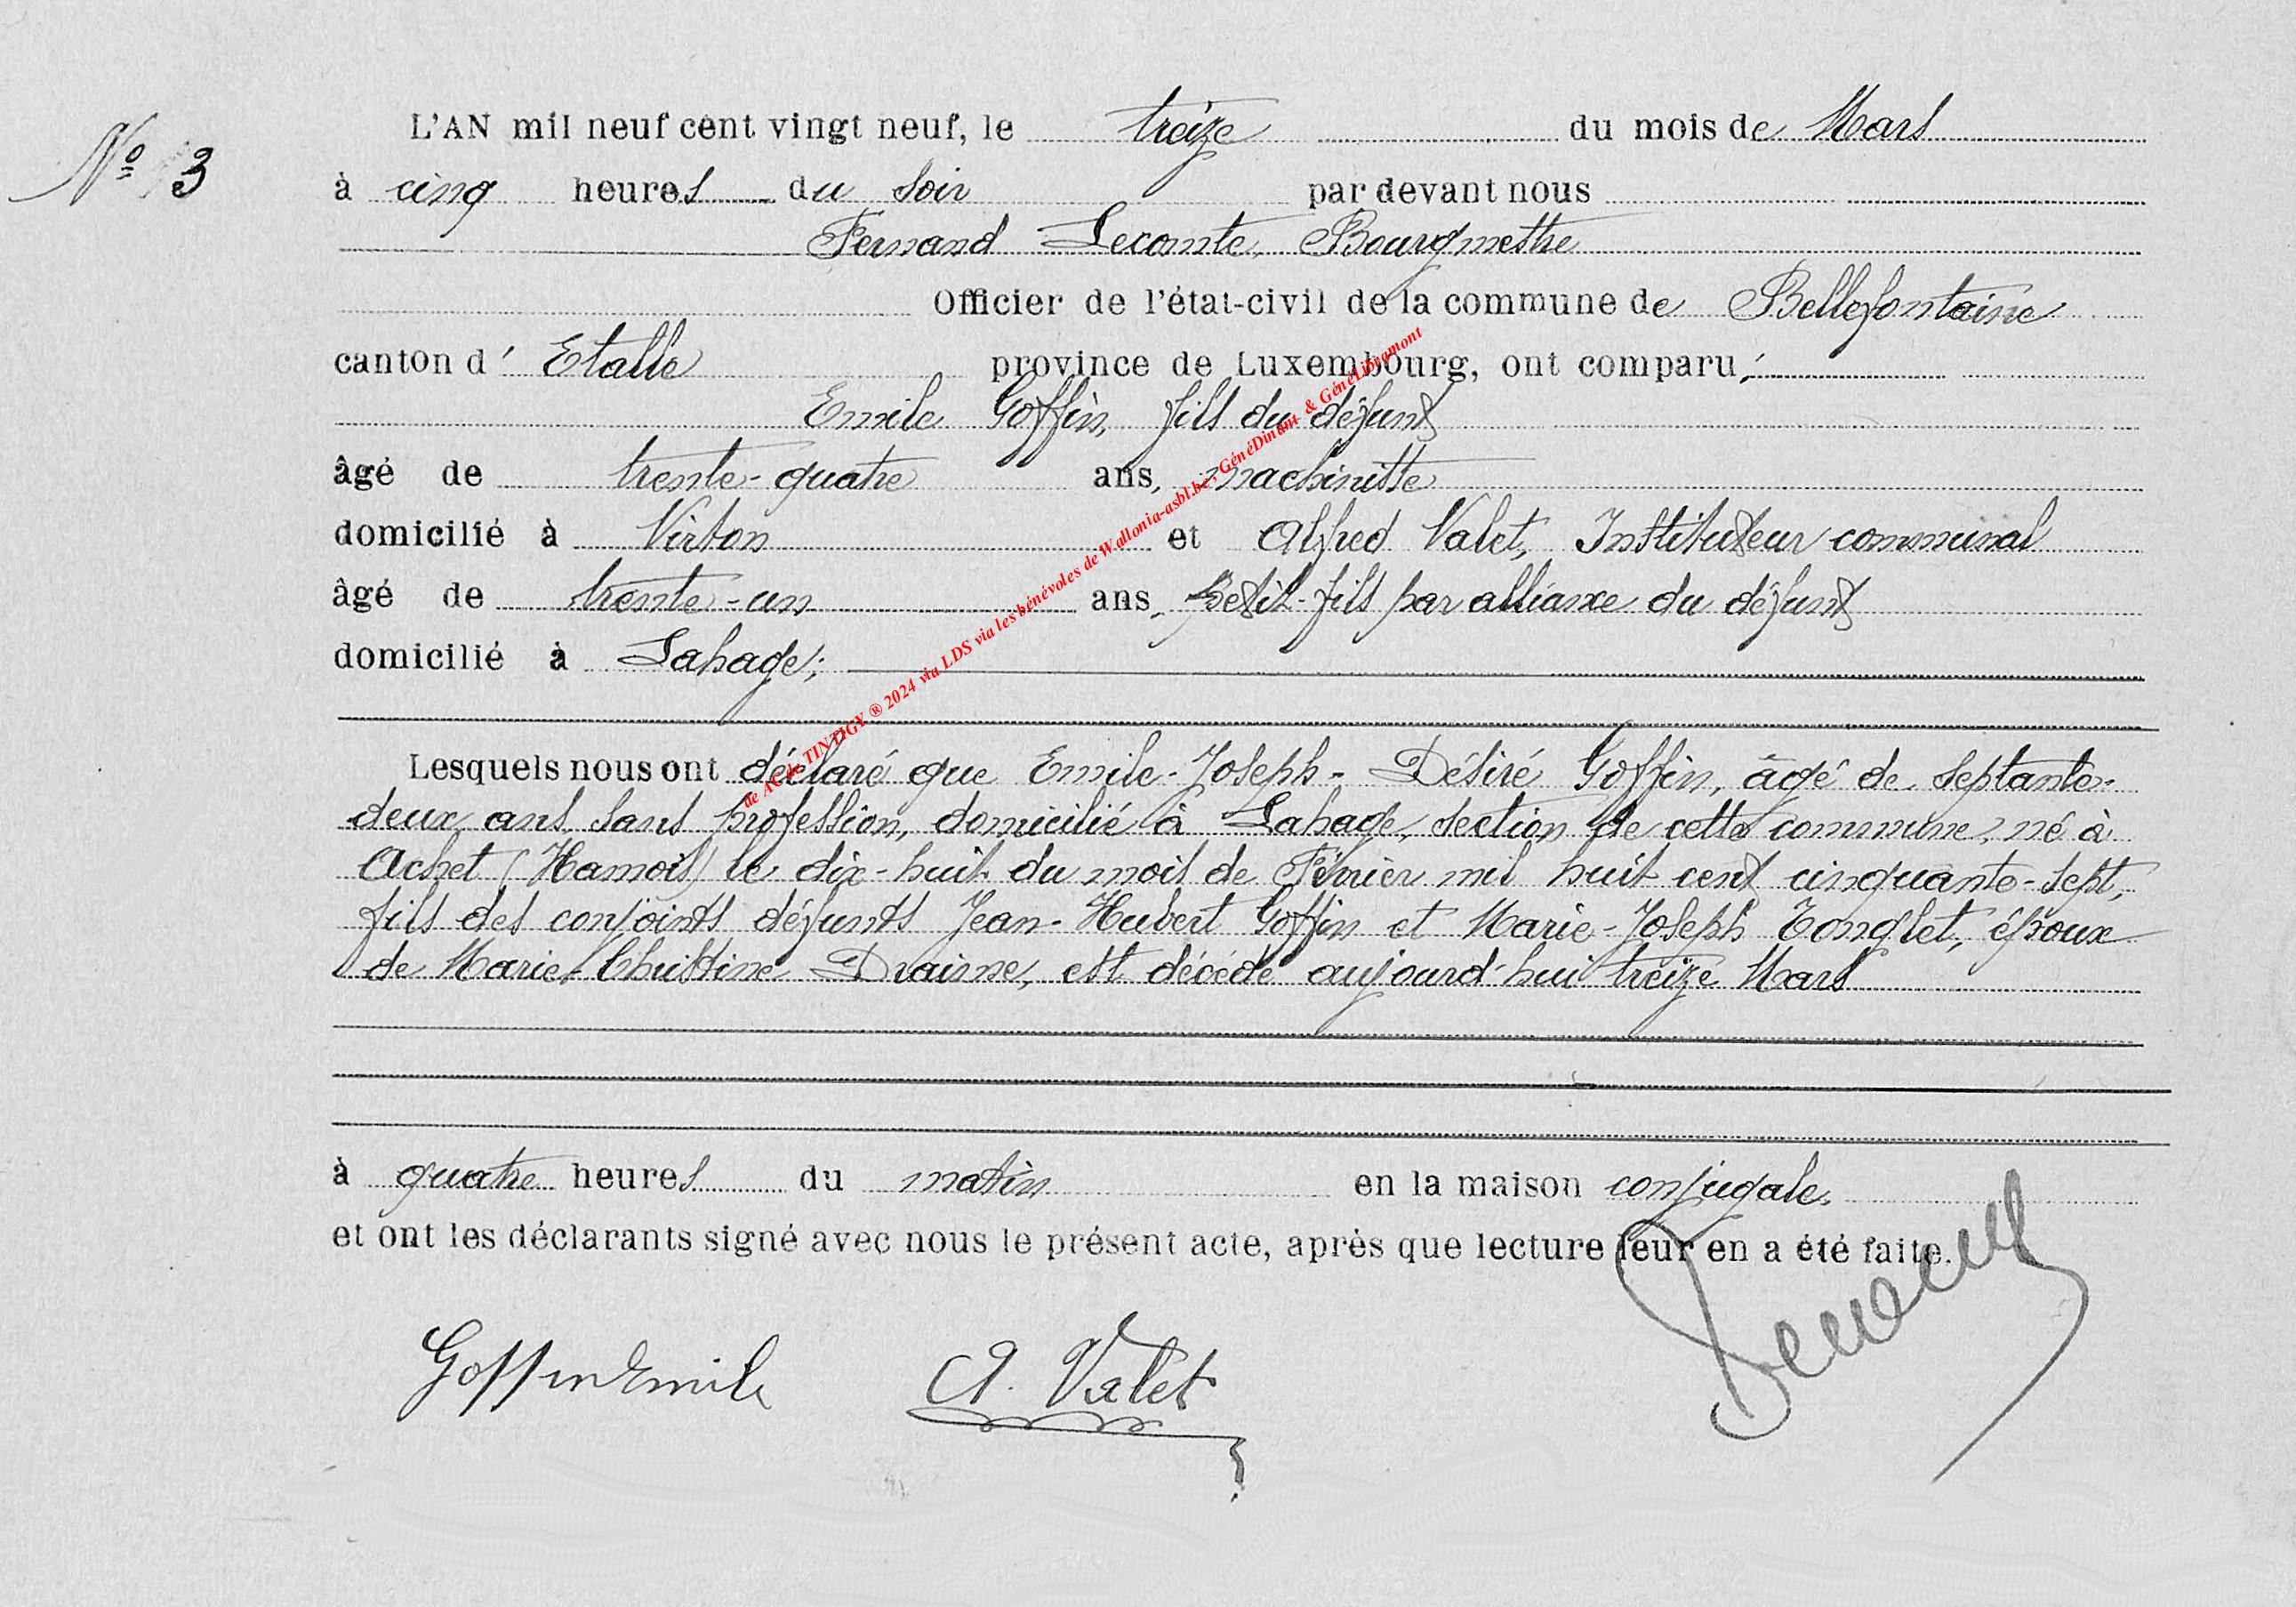 L'AN mil neuf cent vingt neuf, le treize du mois de Mars
Nº 3
à cinq heures du soir par devant nous
Fernand Lecomte, Bourgmestre
Officier de l'état-civil de la commune de Bellefontaine
canton d' Etalle province de Luxembourg, ont comparu:
Emile Goffin, fils du défunt
âgé de trente-quatre ans, machiniste
domicilié à Virton et Alfred Valet, Instituteur communal
âgé de trente-un ans, petit-fils par alliance du défunt
domicilié à Lahage;
de AC de TINTIGY ® 2024 via LDS via les bénévoles de Wallonia-asbl.be, GénéDinant & GénéLibramont
Lesquels nous ont déclaré que Emile-Joseph-Désiré Goffin, âgé de septante-
deux ans, sans profession, domicilié à Lahage, section de cette commune, né à
Achet (Hamois) le dix-huit du mois de Février mil huit cent cinquante-sept,
fils des conjoints défunts Jean-Hubert Goffin et Marie-Joseph Tonglet, époux
de Marie-Christine Draisne, est décédé aujourd'hui treize Mars
à quatre heures du matin en la maison conjugale.
et ont les déclarants signé avec nous le présent acte, après que lecture leur en a été faite.
Goffin Emile A. Valet